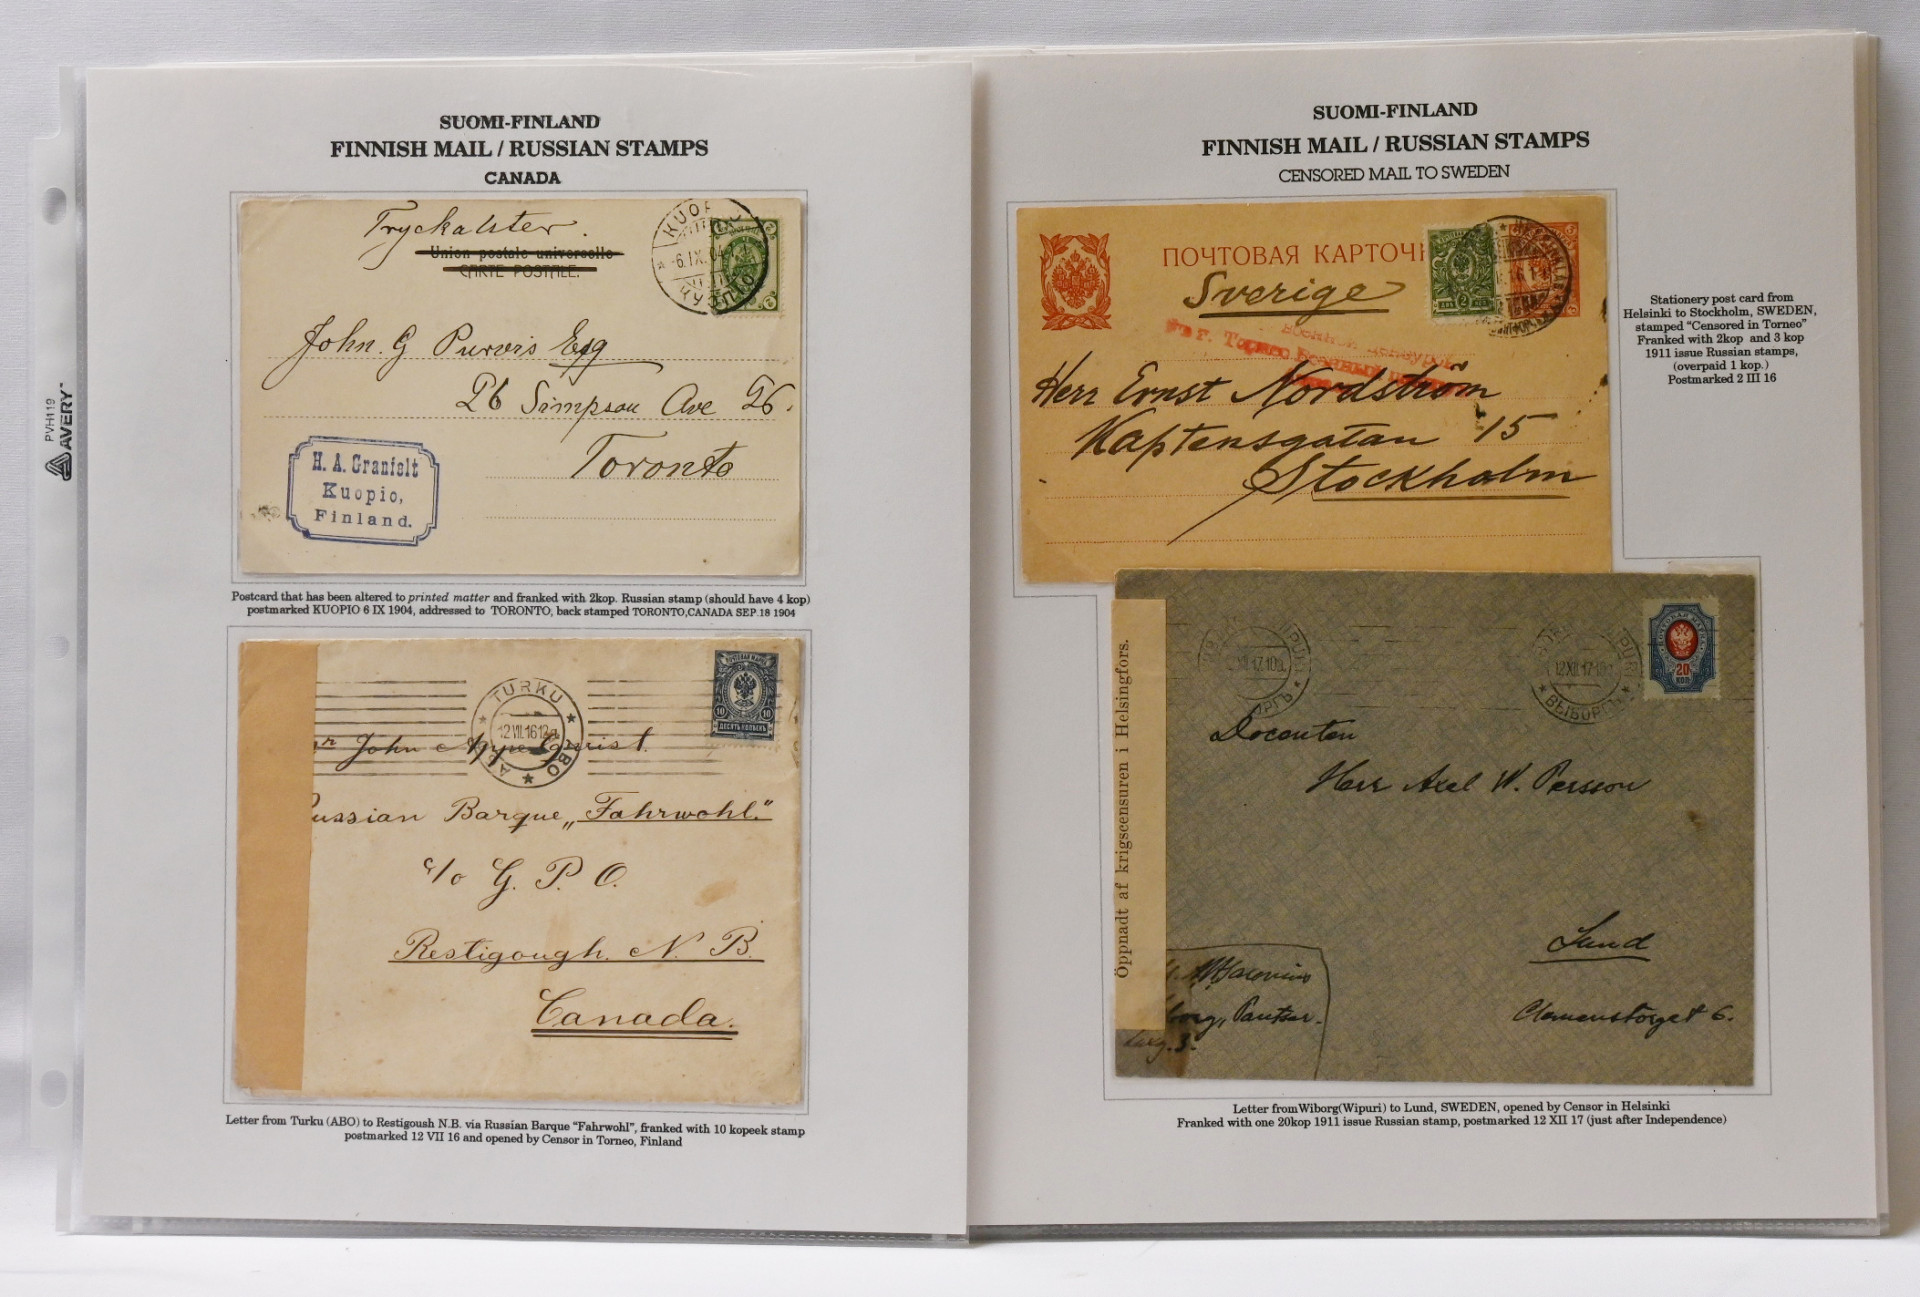 SUOMI-FINLAND
FINNISH MAIL / RUSSIAN STAMPS
CANADA
Tryckalster.
Union postale universelle
CARTE POSTALE.
KUOPIO
6.IX.04
КУОПІО
John. G Purvis Esq
26 Simpson Ave 26.
Toronto
H. A. Granfelt
Kuopio,
Finland.
Postcard that has been altered to printed matter and franked with 2kop. Russian stamp (should have 4 kop)
postmarked KUOPIO 6 IX 1904, addressed to TORONTO, back stamped TORONTO,CANADA SEP.18 1904
ПОЧТОВАЯ МАРКА
10 10
ДЕСЯТЬ КОПѢЕКЪ
TURKU
12.VII.16.12
ABO
John Appelquist.
Russian Barque „Fahrwohl."
c/o G. P. O.
Restigough. N. B.
Canada.
Letter from Turku (ABO) to Restigoush N.B. via Russian Barque "Fahrwohl", franked with 10 kopeek stamp
postmarked 12 VII 16 and opened by Censor in Torneo, Finland
PVH119
AVERY™
SUOMI-FINLAND
FINNISH MAIL / RUSSIAN STAMPS
CENSORED MAIL TO SWEDEN
ПОЧТОВАЯ КАРТОЧ
Sverige
2
3
г. Торнео Военный
Herr Ernst Nordström
Kaptensgatan 15
Stockholm
Stationery post card from
Helsinki to Stockholm, SWEDEN,
stamped "Censored in Torneo"
Franked with 2kop and 3 kop
1911 issue Russian stamps,
(overpaid 1 kop.)
Postmarked 2 III 16
12.XII.17.10
ВЫБОРГЪ
ПОЧТОВАЯ МАРКА
20
КОП
Öppnadt af krigscensuren i Helsingfors.
Docenten
Herr Axel W. Persson
Lund
Clemenstorget 6.
Letter fromWiborg(Wipuri) to Lund, SWEDEN, opened by Censor in Helsinki
Franked with one 20kop 1911 issue Russian stamp, postmarked 12 XII 17 (just after Independence)